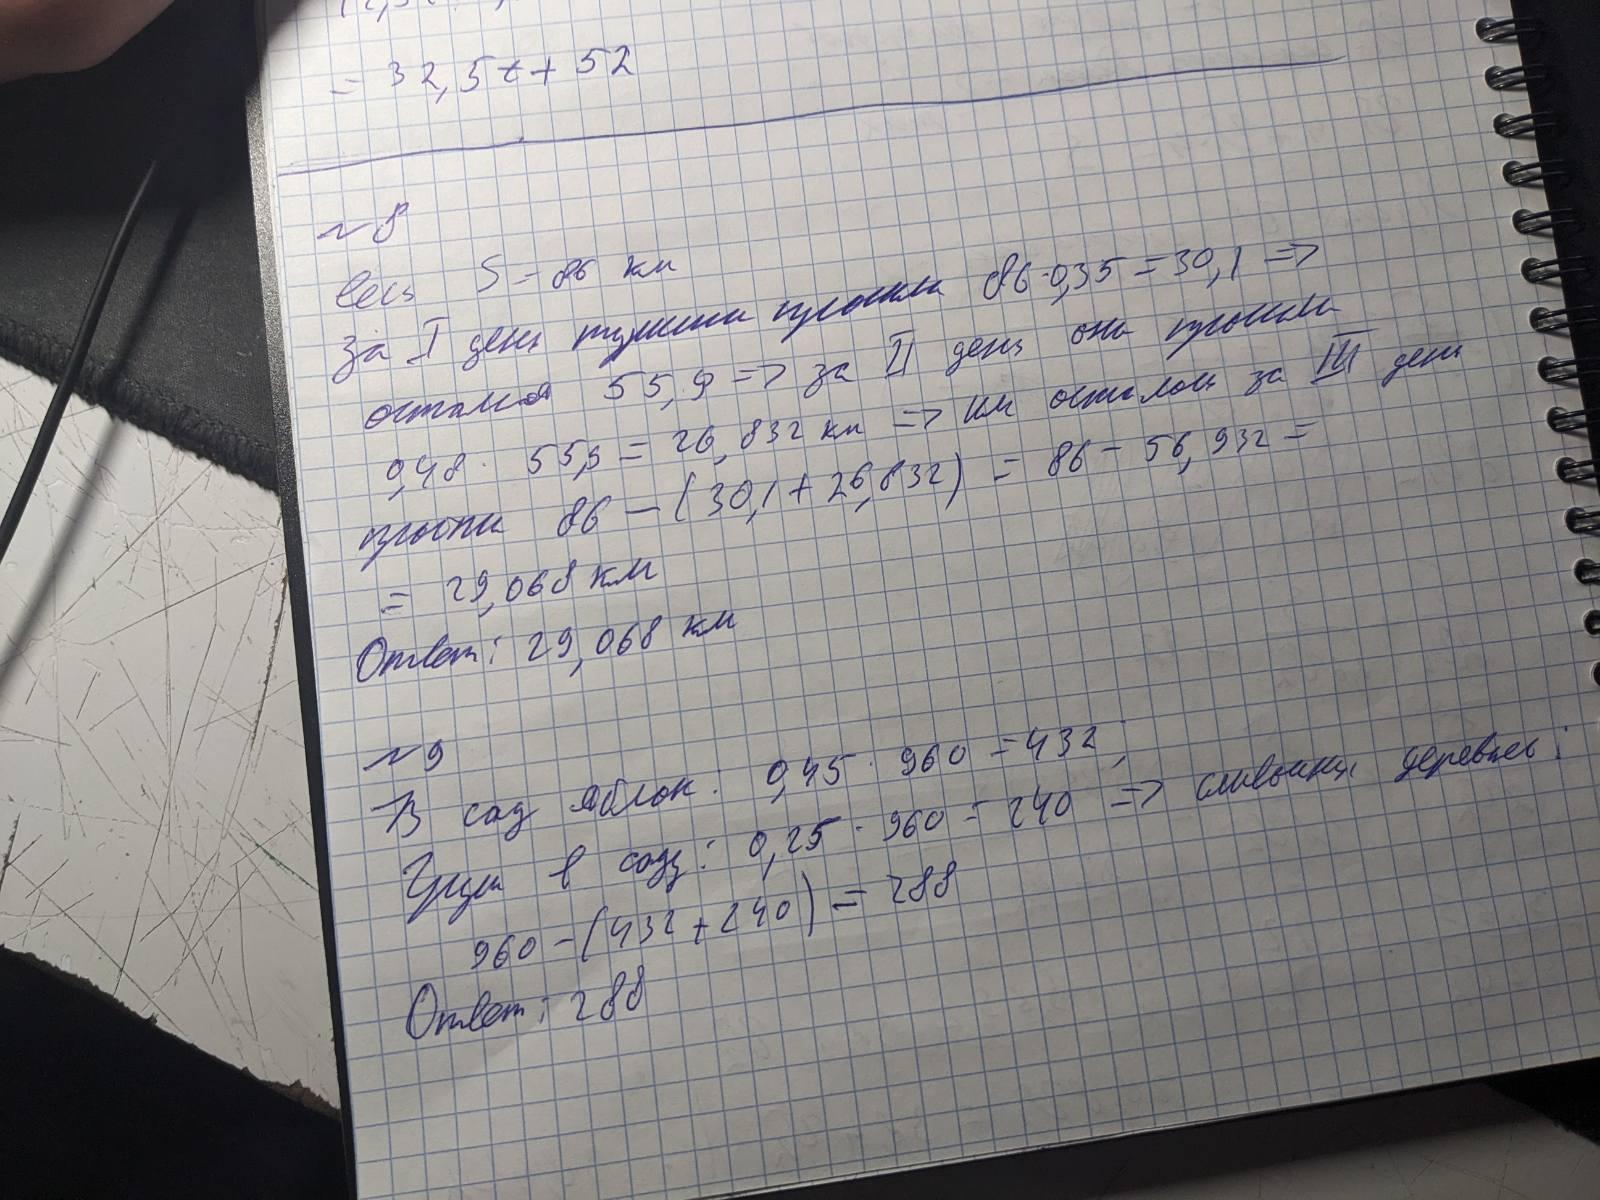 = 32,5t + 52
№8
весь S = 86 км
За I день туристы прошли 86·0,35 = 30,1 =>
осталось 55,9 => за II день они прошли
0,48 · 55,9 = 26,832 км => им осталось за III день
пройти 86 - (30,1 + 26,832) = 86 - 56,932 =
= 29,068 км
Ответ: 29,068 км
№9
В сад яблок: 0,45 · 960 = 432;
Груш в саду: 0,25 · 960 = 240 => сливовых деревьев:
960 - (432 + 240) = 288
Ответ: 288